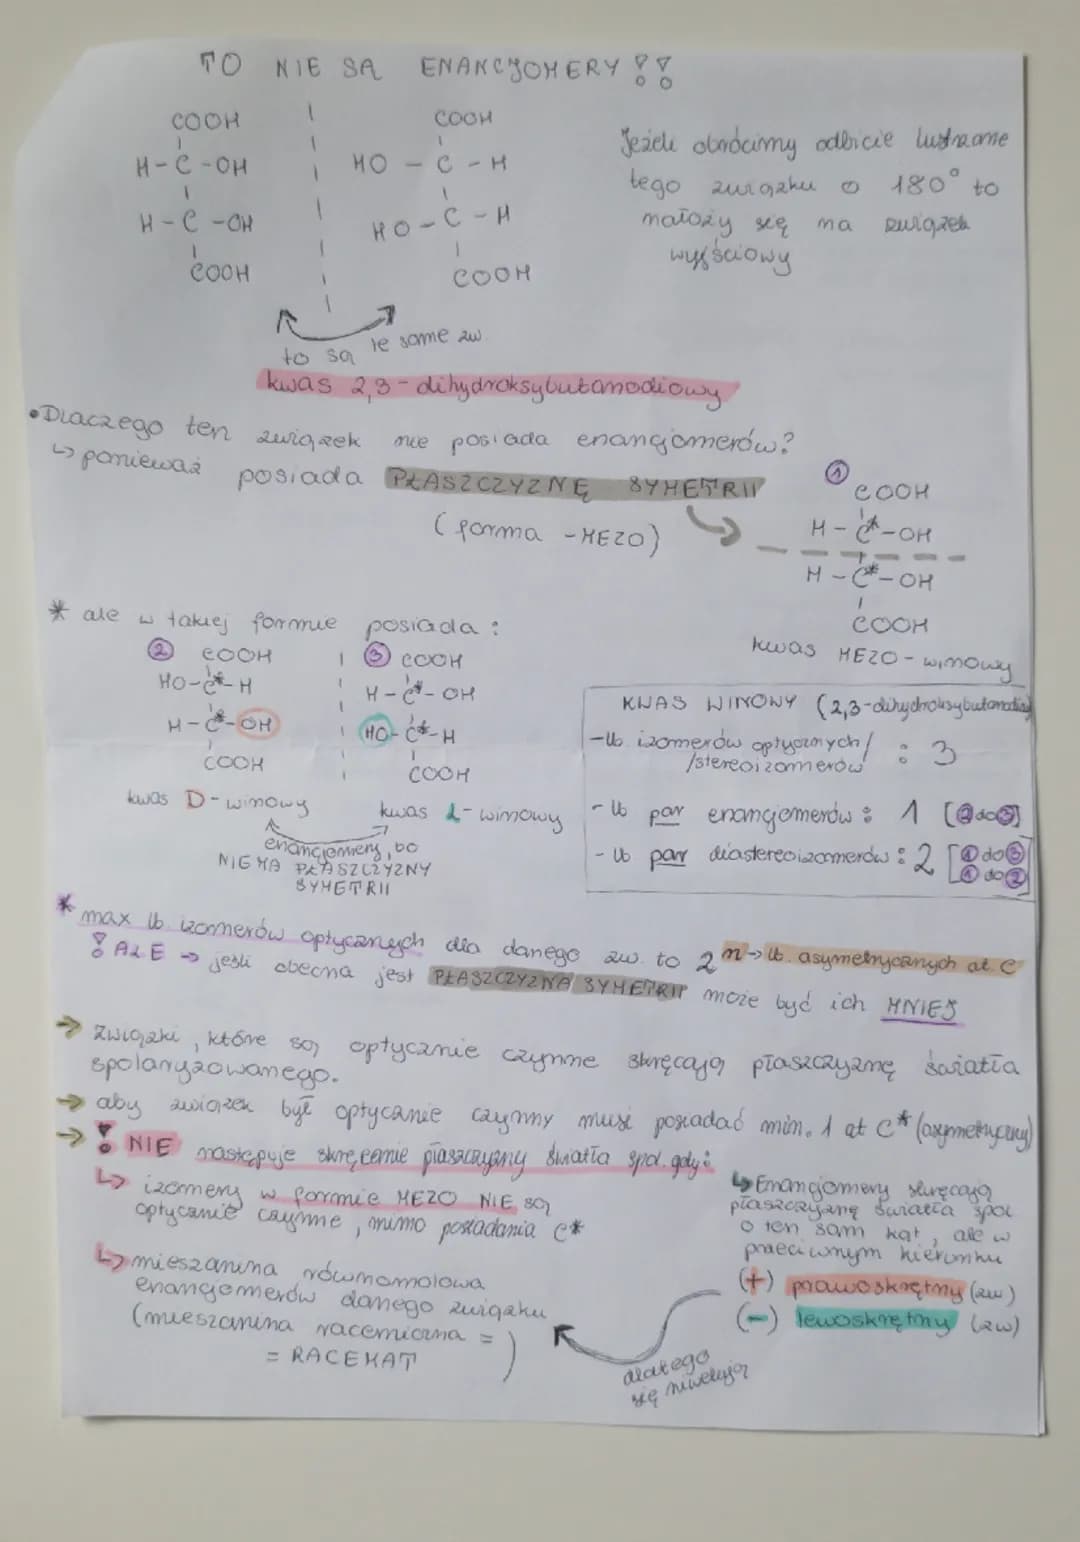 TO NIE SĄ ENANCJOMERY !!
COOH
H-C-OH
H-C-OH
COOH
COOH
HO-C-H
HO-C-H
COOH
Jeżeli obrócimy odbicie lustrzane
tego związku o 180° to
nałoży się na związek
wyjściowy
to są te same zw.
kwas 2,3-dihydroksybutanodiowy
• Dlaczego ten związek nie posiada enancjomerów?
↳ ponieważ posiada PŁASZCZYZNĘ SYMETRII
(forma -MEZO)
①
COOH
H-C*-OH
H-C*-OH
COOH
kwas MEZO-winowy
* ale w takiej formie posiada:
② COOH
HO-C*-H
H-C*-OH
COOH
kwas D-winowy
③ COOH
H-C*-OH
HO-C*-H
COOH
kwas L-winowy
enancjomery, bo
NIE MA PŁASZCZYZNY
SYMETRII
KWAS WINOWY (2,3-dihydroksybutanodiowy)
-lb. izomerów optycznych/
/stereoizomerów : 3
- lb par enancjomerów : 1 [② do ③]
- lb par diastereoizomerów : 2 [① do ③
① do ②]
* max lb. izomerów optycznych dla danego zw. to 2 n → lb. asymetrycznych at. C
! ALE → jeśli obecna jest PŁASZCZYZNA SYMETRII może być ich MNIEJ
→ związki, które są optycznie czynne skręcają płaszczyznę światła
spolaryzowanego.
→ aby związek był optycznie czynny musi posiadać min. 1 at C* (asymetryczny)
→ ! NIE następuje skręcenie płaszczyzny światła spol. gdy:
↳ izomery w formie MEZO NIE są
optycznie czynne, mimo posiadania C*
↳ mieszanina równomolowa
enancjomerów danego związku
(mieszanina racemiczna =
= RACEMAT)
↳ Enancjomery skręcają
płaszczyznę światła spol
o ten sam kąt, ale w
przeciwnym kierunku
(+) prawoskrętny (zw)
(-) lewoskrętny (zw)
dlatego
się niwelują